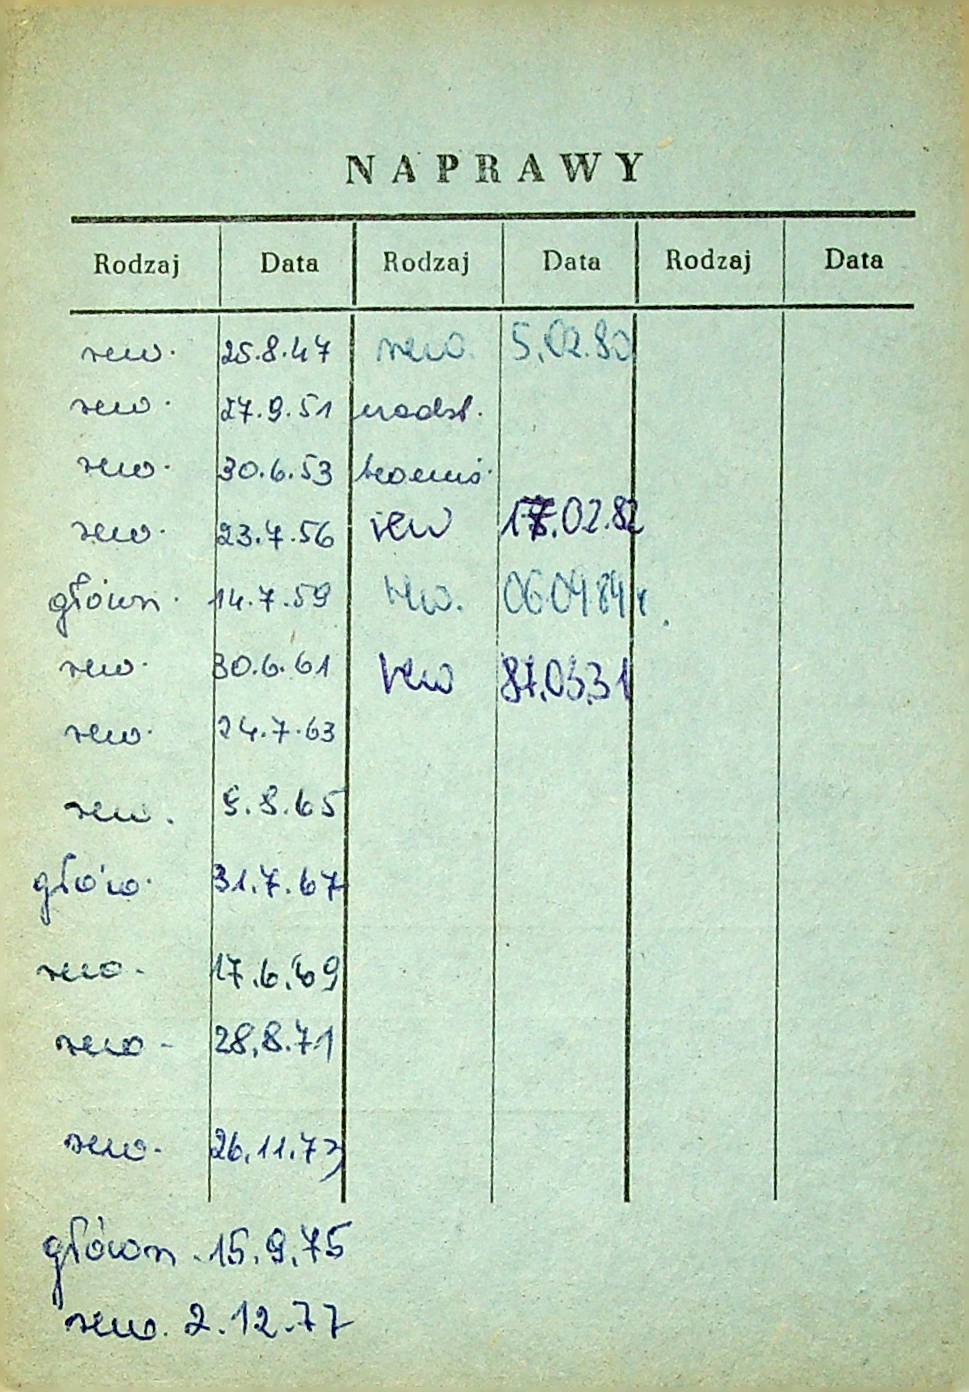 NAPRAWY
Rodzaj Data Rodzaj Data Rodzaj Data
rew. 25.8.47 rew. 5.02.80
rew. 27.9.51 nadst.
rew. 30.6.53
rew. 23.7.56 rew .02.82
główn. 14.7.59 rew. 06.09.84r.
rew. 30.6.61 rew 87.03.31
rew. 24.7.63
rew. 9.8.65
główn. 31.7.67
rew. 17.6.69
rew. 28.8.71
rew. 26.11.73
główn. 15.9.75
rew. 2.12.77